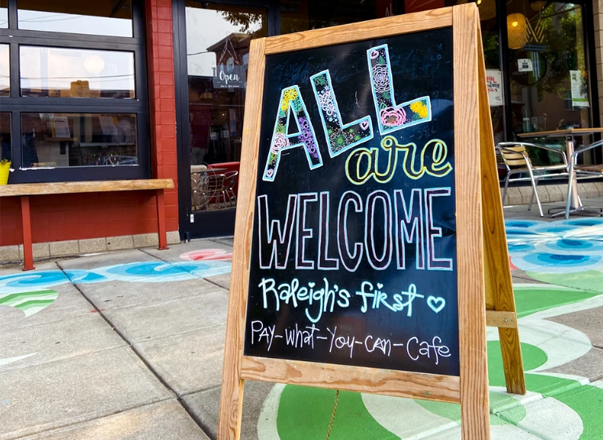 Open
ALL
are
WELCOME
Raleigh's first
PAY-WHAT-YOU-CAN-Cafe